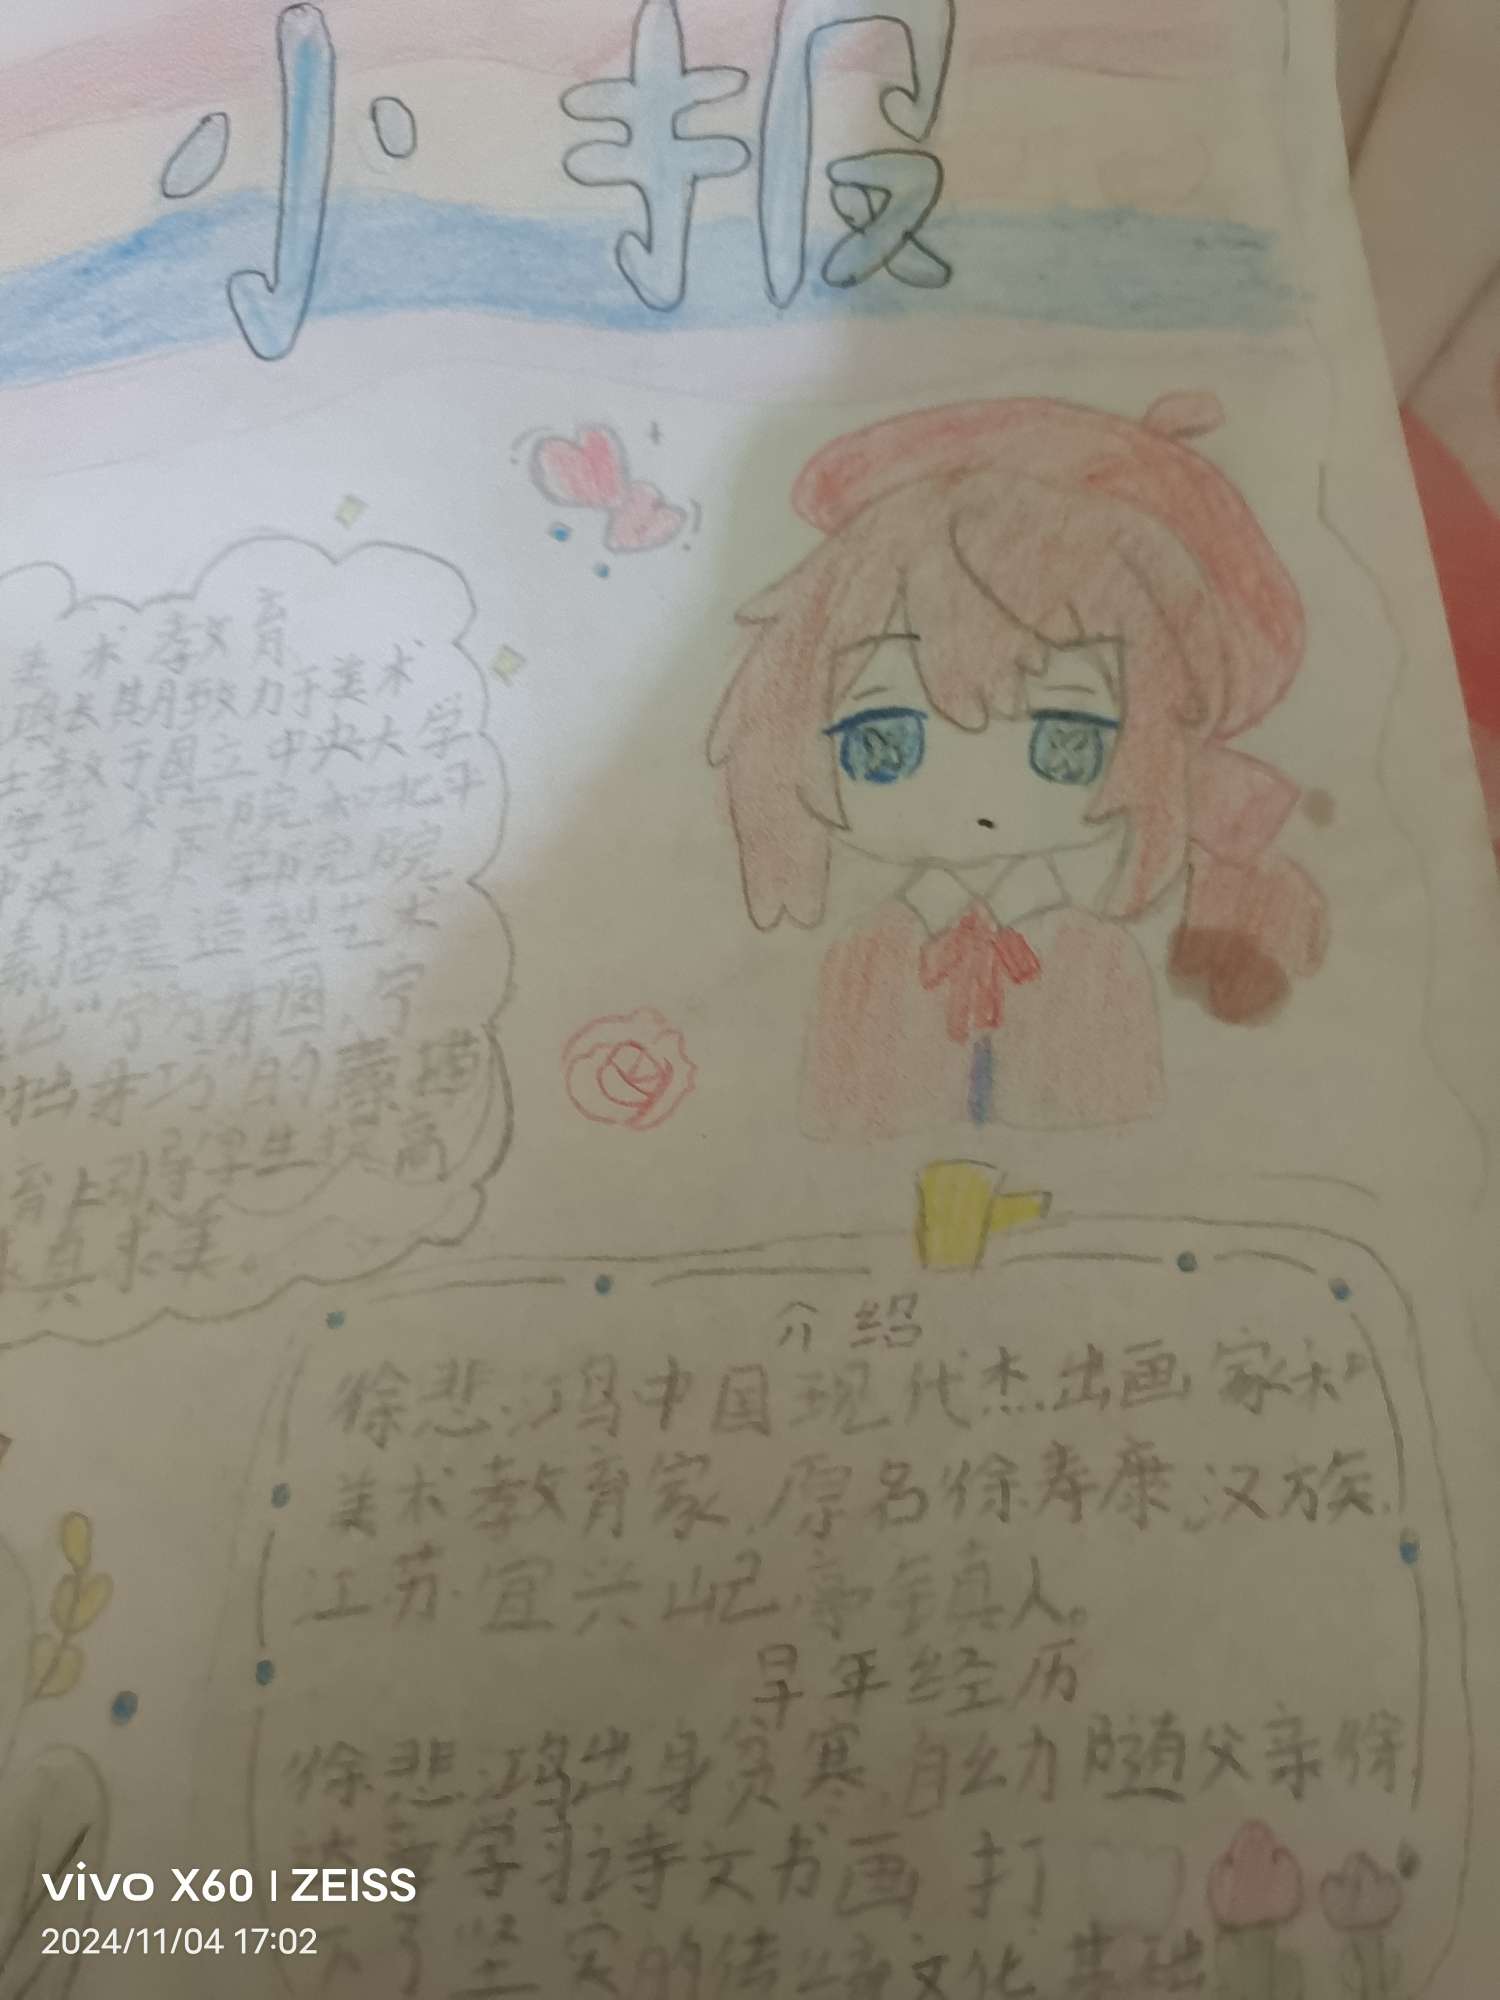 小报
美术教育
长期致力于美术
教于国立中央大学
学艺术 院 北平
中央美 学院 院
素描是造型艺术
出“宁方毋圆、宁
拙毋巧”的素描
育上引导学生提高
真求美。
介绍
徐悲鸿中国现代杰出画家和
美术教育家,原名徐寿康,汉族,
江苏宜兴屺亭镇人。
早年经历
徐悲鸿出身贫寒,自幼随父亲徐
达章学习诗文书画 打
下了坚实的传统文化基础
vivo X60 | ZEISS
2024/11/04 17:02